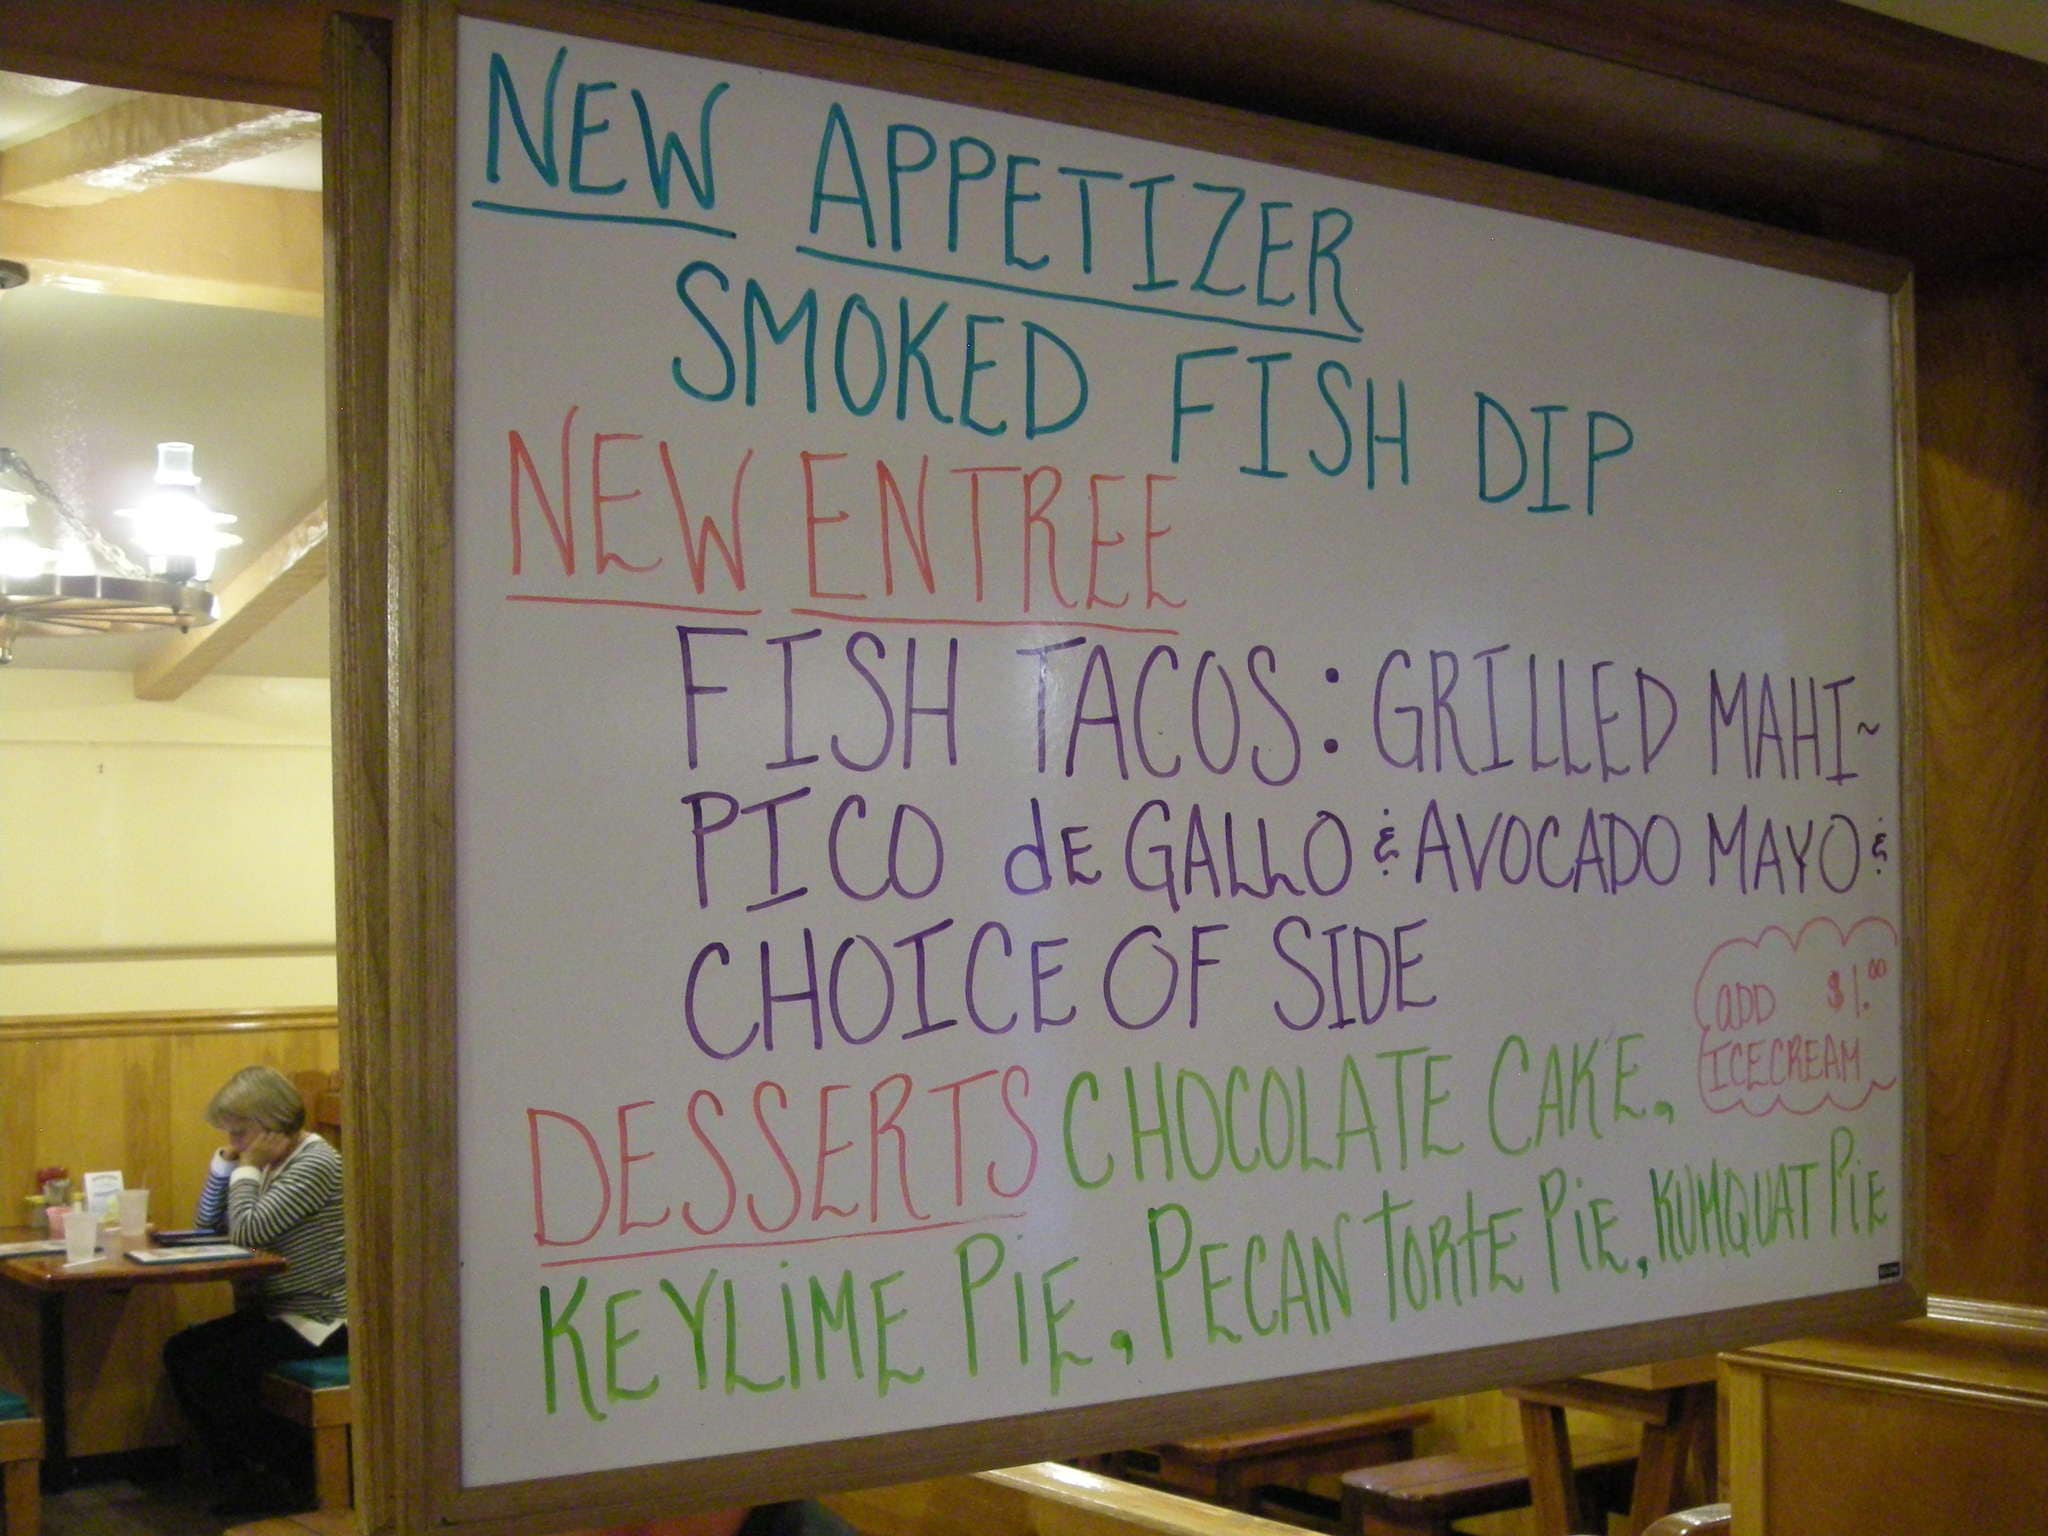 NEW APPETIZER
SMOKED FISH DIP
NEW ENTREE
FISH TACOS: GRILLED MAHI~
PICO dE GALLO & AVOCADO MAYO &
CHOICE OF SIDE
aDD $1.00
ICECREAM
DESSERTS CHOCOLATE CAKE,
KEYLiME PiE, PECAN TORtE PiE, KUMQUAT PiE